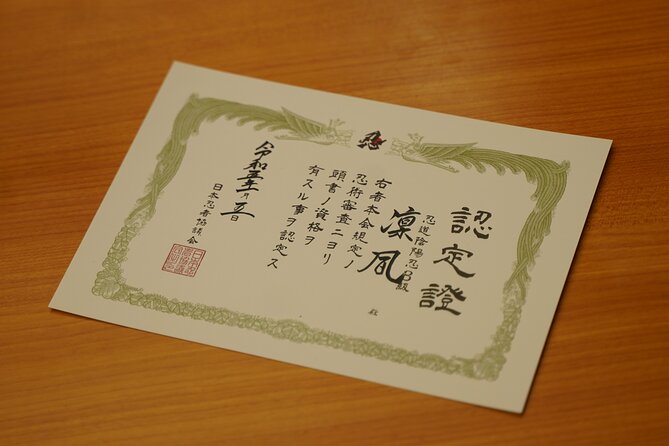 認定證
忍道陰陽忍B級
凛風 殿
右者本会規定ノ
忍術審査ニヨリ
頭書ノ資格ヲ
有スル事ヲ認定ス
令和五年 月五日
日本忍者協議会